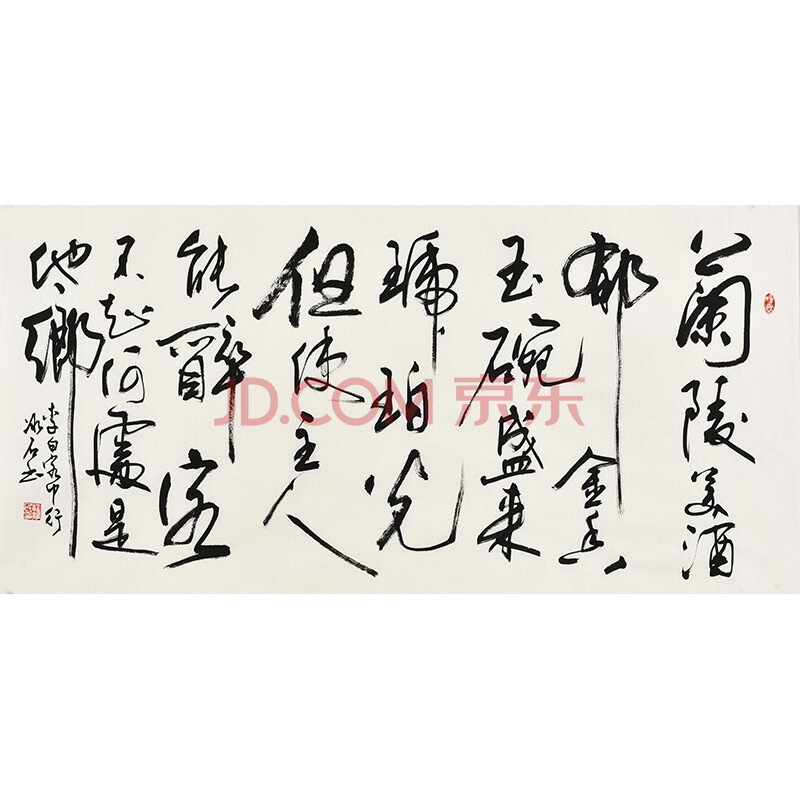 蘭陵美酒
郁金香
玉碗盛来
琥珀光
但使主人
能醉客
不知何處是
他鄉
李白客中行
冰石书
JD.COM 京东